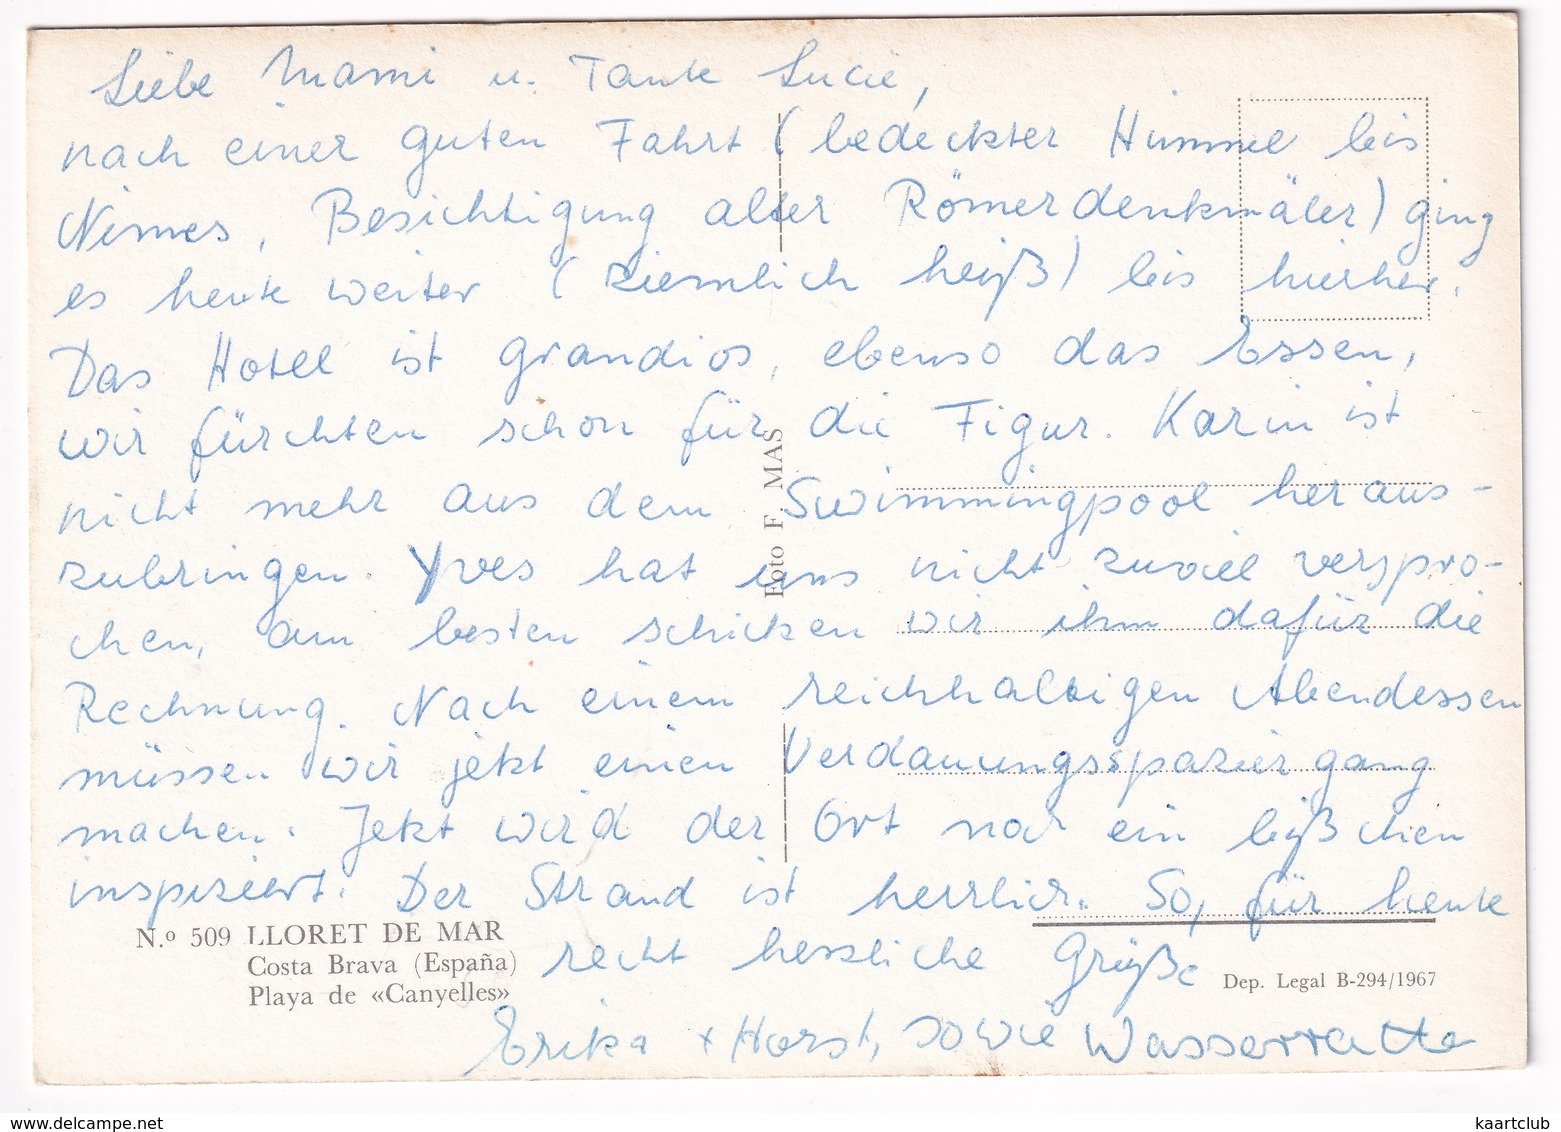 Liebe Mami u. Tante Lucie,
nach einer guten Fahrt (bedeckter Himmel bis
Nîmes, Besichtigung alter Römerdenkmäler) ging
es heute weiter (ziemlich heiß) bis hierher.
Das Hotel ist grandios, ebenso das Essen,
wir fürchten schon für die Figur. Karin ist
nicht mehr aus dem Swimmingpool heraus-
zubringen. Yves hat uns nicht zuviel verspro-
chen, am besten schicken wir ihm dafür die
Rechnung. Nach einem reichhaltigen Abendessen
müssen wir jetzt einen Verdauungsspaziergang
machen. Jetzt wird der Ort noch ein bißchen
inspiziert. Der Strand ist herrlich. So, für heute
recht herzliche Grüße
Erika + Horst, sowie Wasserratte
Foto F. MAS
N.º 509 LLORET DE MAR
Costa Brava (España)
Playa de «Canyelles»
Dep. Legal B-294/1967
kaartclub